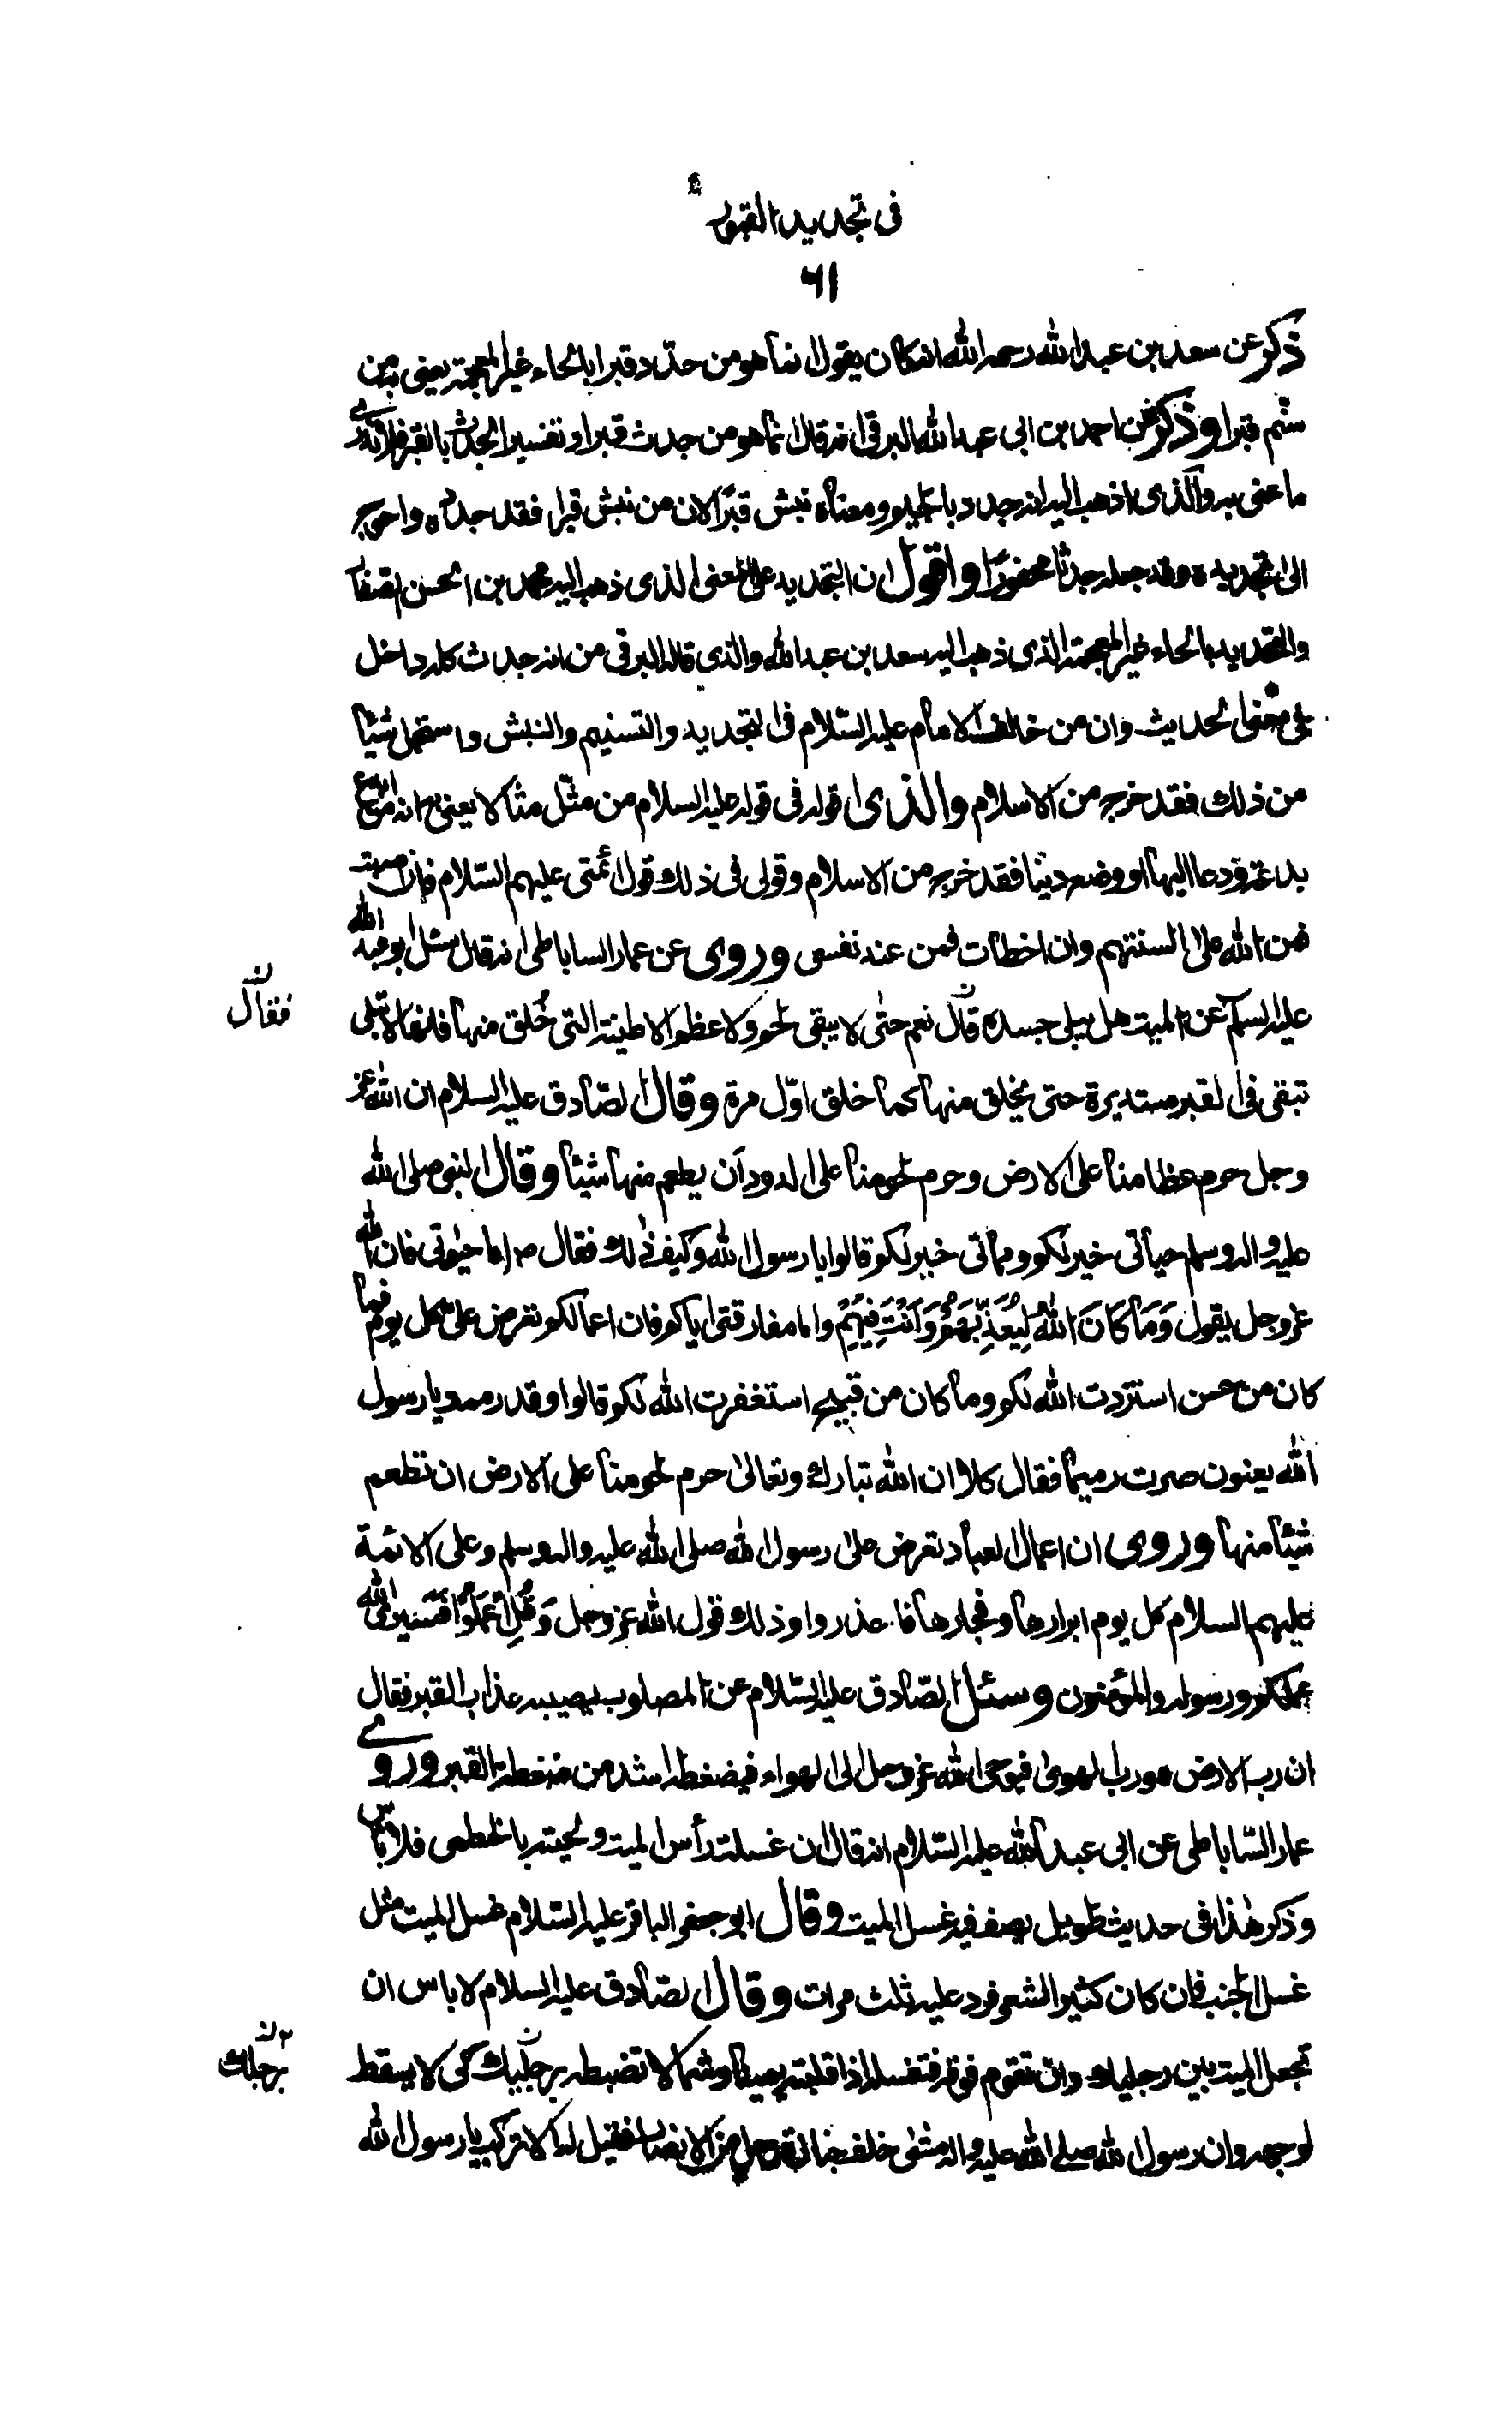 فى تجديد القبور
٦١
ذكر عن سعد بن عبد الله رحمه الله انه كان يقول انما هو من حدّد قبرا بالحاء غير المعجمة يعنى به من
سنّم قبرا وذكر عن احمد بن ابى عبد الله البرقى انه قال انما هو من جدث قبرا وتفسير الجدث بالقبر فلا ندرى
ما عنى به والذى اذهب اليه انه جدد بالجيم ومعناه نبش قبرا لان من نبش قبرا فقد جدده واحوج
الى تجديده وقد جعله جدثا محفورا واقول ان التجديد على المعنى الذى ذهب اليه محمد بن الحسن الصفار
والتحديد بالحاء غير المعجمة الذى ذهب اليه سعد بن عبد الله والذى قاله البرقى من انه جدث كله داخل
فى معنى الحديث وان من خالف الامام عليه السّلام فى التجديد والتسنيم والنبش واستحل شيئا
من ذلك فقد خرج من الاسلام والذى اقوله فى قوله عليه السلام من مثّل مثالا يعنى به انه من ابدع
بدعة ودعا اليها او وضع دينا فقد خرج من الاسلام وقولى فى ذلك قول ائمتى عليهم السّلام فان اصبت
فمن الله على السنتهم وان اخطات فمن عند نفسى وروى عن عمار الساباطى انه قال سئل ابو عبد الله
عليه السلم عن الميت هل يبلى جسده قال نعم حتى لا يبقى لحم ولا عظم الا طينته التى خُلق منها فانها لا تبلى
ن فقال
تبقى فى القبر مستديرة حتى يخلق منها كما خلق اوّل مرة وقال الصّادق عليه السلام ان الله عز
وجل حرم عظامنا على الارض وحرم لحومنا على الدود ان يطعم منها شيئا وقال النبى صلى الله
عليه واله وسلم حياتى خير لكم ومماتى خير لكم قالوا يا رسول الله وكيف ذلك فقال ص اما حيوتى فان الله
عز وجل يقول وَمَا كَانَ اللهُ لِيُعَذِّبَهُمْ وَاَنْتَ فِيْهِمْ واما مفارقتى اياكم فان اعمالكم تعرض علىّ كل يوم فما
كان من حسن استزدت الله لكم وما كان من قبيح استغفرت الله لكم قالوا وقد رممت يا رسول
الله يعنون صرت رميما فقال كلا ان الله تبارك وتعالى حرم لحومنا على الارض ان تطعم
شيئا منها وروى ان اعمال العباد تعرض على رسول الله صلى الله عليه واله وسلم وعلى الائمة
عليهم السلام كل يوم ابرارها وفجارها فاحذروا وذلك قول الله عز وجل وَقُلِ اعْمَلُوْا فَسَيَرَى اللهُ
عملكم ورسوله والمؤمنون وسئل الصّادق عليه السّلام عن المصلوب يصيبه عذاب القبر فقال
ان رب الارض هو رب الهوى فيوحى الله عز وجل الى الهواء فيضغطه اشد من ضغطة القبر وروى
عمار السّاباطى عن ابى عبد الله عليه السّلام انه قال ان غسلت رأس الميت ولحيته بالخطمى فلا باس
وذكر هذا فى حديث طويل يصف فيه غسل الميت وقال ابو جعفر الباقر عليه السّلام غسل الميت مثل
غسل الجنب فان كان كثير الشعر فرد عليه ثلث مرات وقال الصّادق عليه السلام لا باس ان
تجعل الميت بين رجليك وان تقوم فوقه فتغسله اذا قلبته يمينا وشمالا تضبطه برجليك كى لا يسقط
٢ ن برجلك
لوجهه وان رسول الله صلى الله عليه واله مشى خلف جنازة رجل من الانصار فقيل له الا تركب يا رسول الله